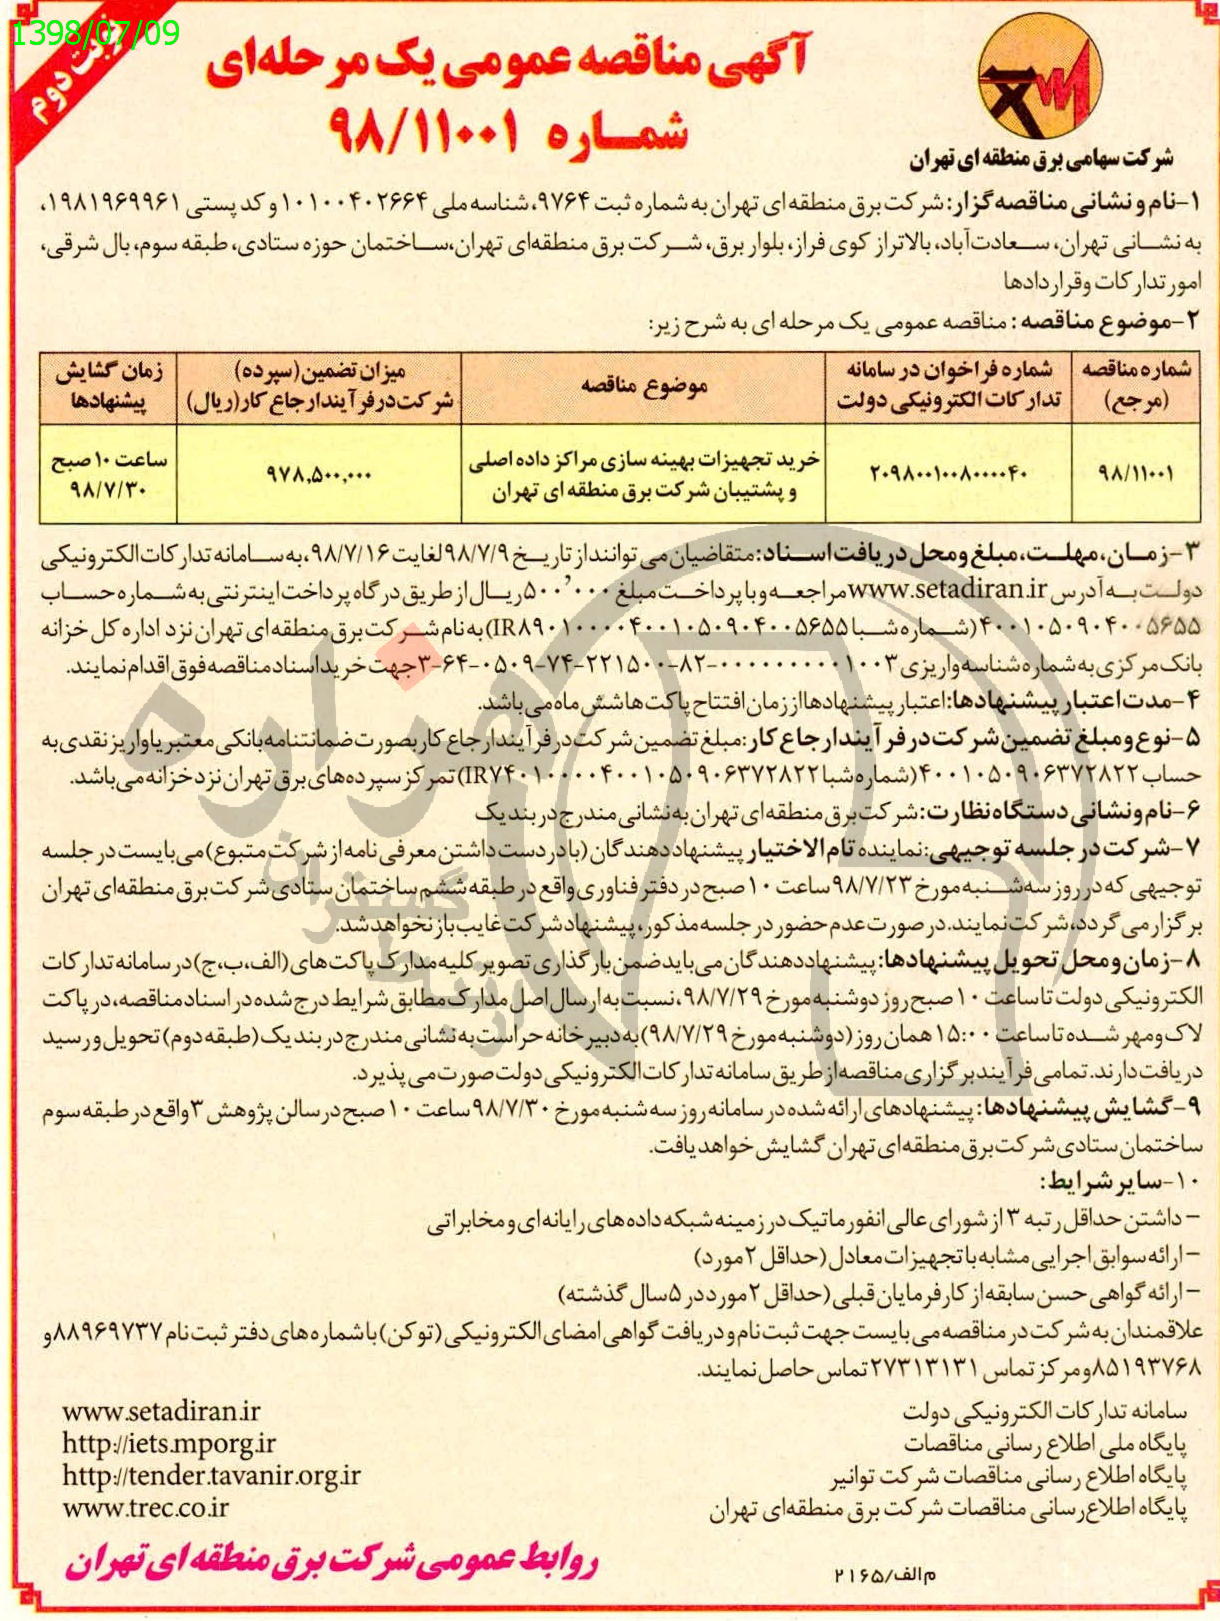 1398/07/09
نوبت دوم
آگهی مناقصه عمومی یک مرحله‌ای
شماره ۹۸/۱۱۰۰۱
شرکت سهامی برق منطقه ای تهران
۱-نام و نشانی مناقصه‌گزار: شرکت برق منطقه ای تهران به شماره ثبت ۹۷۶۴، شناسه ملی ۱۰۱۰۰۴۰۲۶۶۴ و کد پستی ۱۹۸۱۹۶۹۹۶۱،
به نشانی تهران، سعادت‌آباد، بالاتر از کوی فراز، بلوار برق، شرکت برق منطقه‌ای تهران، ساختمان حوزه ستادی، طبقه سوم، بال شرقی،
امور تدارکات وقراردادها
۲-موضوع مناقصه: مناقصه عمومی یک مرحله ای به شرح زیر:
شماره مناقصه (مرجع)
شماره فراخوان در سامانه تدارکات الکترونیکی دولت
موضوع مناقصه
میزان تضمین (سپرده) شرکت در فرآیند ارجاع کار (ریال)
زمان گشایش پیشنهادها
۹۸/۱۱۰۰۱
۲۰۹۸۰۰۱۰۰۸۰۰۰۰۴۰
خرید تجهیزات بهینه سازی مراکز داده اصلی و پشتیبان شرکت برق منطقه ای تهران
۹۷۸,۵۰۰,۰۰۰
ساعت ۱۰ صبح ۹۸/۷/۳۰
۳-زمان، مهلت، مبلغ و محل دریافت اسناد: متقاضیان می توانند از تاریخ ۹۸/۷/۹ لغایت ۹۸/۷/۱۶، به سامانه تدارکات الکترونیکی
دولت به آدرس www.setadiran.ir مراجعه و با پرداخت مبلغ ۵۰۰٬۰۰۰ ریال از طریق درگاه پرداخت اینترنتی به شماره حساب
۴۰۰۱۰۵۰۹۰۴۰۰۵۶۵۵ (شماره شبا IR۸۹۰۱۰۰۰۰۴۰۰۱۰۵۰۹۰۴۰۰۵۶۵۵) به نام شرکت برق منطقه ای تهران نزد اداره کل خزانه
بانک مرکزی به شماره شناسه واریزی ۳-۶۴-۰۵۰۹-۷۴-۲۲۱۵۰۰-۸۲-۰۰۰۰۰۰۰۰۰۰۱۰۰۳ جهت خرید اسناد مناقصه فوق اقدام نمایند.
۴-مدت اعتبار پیشنهادها: اعتبار پیشنهادها از زمان افتتاح پاکت ها شش ماه می باشد.
۵-نوع و مبلغ تضمین شرکت در فرآیند ارجاع کار: مبلغ تضمین شرکت در فرآیند ارجاع کار بصورت ضمانتنامه بانکی معتبر یا واریز نقدی به
حساب ۴۰۰۱۰۵۰۹۰۶۳۷۲۸۲۲ (شماره شبا IR۷۴۰۱۰۰۰۰۴۰۰۱۰۵۰۹۰۶۳۷۲۸۲۲) تمرکز سپرده های برق تهران نزد خزانه می باشد.
۶-نام و نشانی دستگاه نظارت: شرکت برق منطقه ای تهران به نشانی مندرج در بند یک
۷-شرکت در جلسه توجیهی: نماینده تام الاختیار پیشنهاد دهندگان (با در دست داشتن معرفی نامه از شرکت متبوع) می بایست در جلسه
توجیهی که در روز سه شنبه مورخ ۹۸/۷/۲۳ ساعت ۱۰ صبح در دفتر فناوری واقع در طبقه ششم ساختمان ستادی شرکت برق منطقه ای تهران
برگزار می گردد، شرکت نمایند. در صورت عدم حضور در جلسه مذکور، پیشنهاد شرکت غایب باز نخواهد شد.
۸-زمان و محل تحویل پیشنهادها: پیشنهاددهندگان می باید ضمن بارگذاری تصویر کلیه مدارک پاکت های (الف،ب،ج) در سامانه تدارکات
الکترونیکی دولت تا ساعت ۱۰ صبح روز دوشنبه مورخ ۹۸/۷/۲۹، نسبت به ارسال اصل مدارک مطابق شرایط درج شده در اسناد مناقصه، در پاکت
لاک و مهر شده تا ساعت ۱۵:۰۰ همان روز (دوشنبه مورخ ۹۸/۷/۲۹) به دبیرخانه حراست به نشانی مندرج در بند یک (طبقه دوم) تحویل و رسید
دریافت دارند. تمامی فرآیند برگزاری مناقصه از طریق سامانه تدارکات الکترونیکی دولت صورت می پذیرد.
۹-گشایش پیشنهادها: پیشنهادهای ارائه شده در سامانه روز سه شنبه مورخ ۹۸/۷/۳۰ ساعت ۱۰ صبح در سالن پژوهش ۳ واقع در طبقه سوم
ساختمان ستادی شرکت برق منطقه ای تهران گشایش خواهد یافت.
۱۰-سایر شرایط:
- داشتن حداقل رتبه ۳ از شورای عالی انفورماتیک در زمینه شبکه داده های رایانه ای و مخابراتی
- ارائه سوابق اجرایی مشابه با تجهیزات معادل (حداقل ۲ مورد)
- ارائه گواهی حسن سابقه از کارفرمایان قبلی (حداقل ۲ مورد در ۵ سال گذشته)
علاقمندان به شرکت در مناقصه می بایست جهت ثبت نام و دریافت گواهی امضای الکترونیکی (توکن) با شماره های دفتر ثبت نام ۸۸۹۶۹۷۳۷ و
۸۵۱۹۳۷۶۸ و مرکز تماس ۲۷۳۱۳۱۳۱ تماس حاصل نمایند.
سامانه تدارکات الکترونیکی دولت www.setadiran.ir
پایگاه ملی اطلاع رسانی مناقصات http://iets.mporg.ir
پایگاه اطلاع رسانی مناقصات شرکت توانیر http://tender.tavanir.org.ir
پایگاه اطلاع‌رسانی مناقصات شرکت برق منطقه‌ای تهران www.trec.co.ir
م الف/۲۱۶۵
روابط عمومی شرکت برق منطقه ای تهران